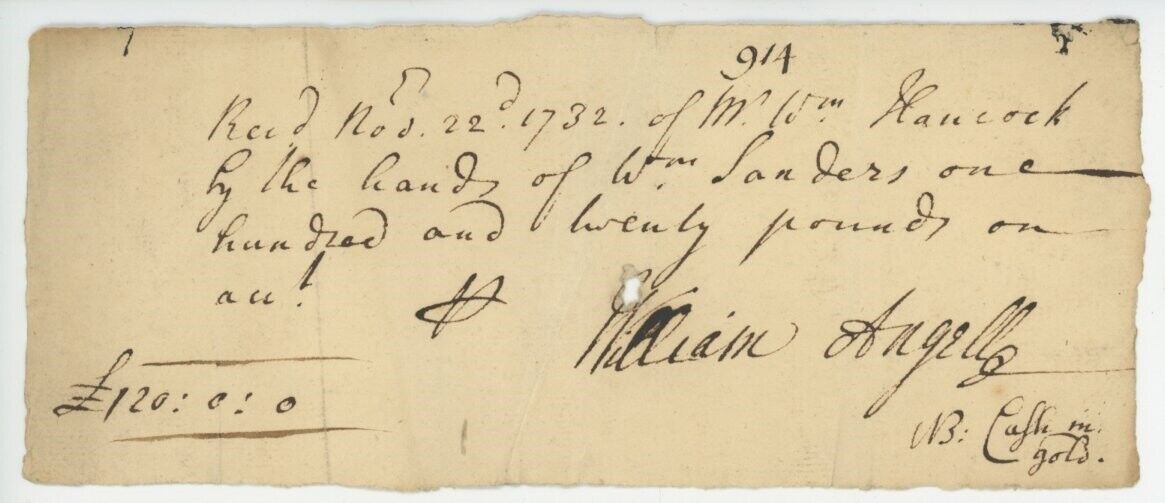 914
Rec'd Nov.r 22d. 1732. of Mr. Wm. Hancock
by the hands of Wm. Sanders one
hundred and twenty pounds on
acct.
William Angell
£120: 0: 0
NB: Cash in
gold.